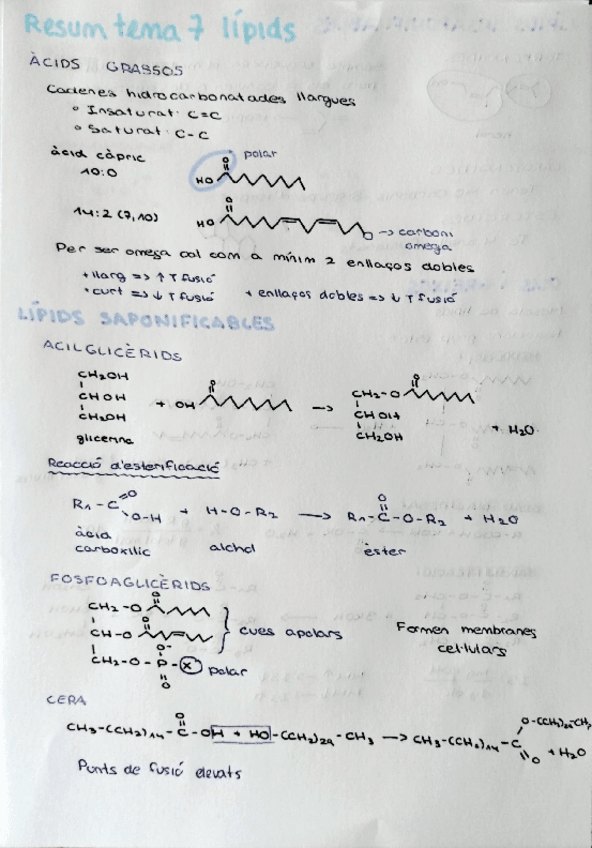 Resum tema 7 lípids
ÀCIDS GRASSOS
Cadenes hidrocarbonatades llargues
° Insaturat: C=C
° Saturat: C-C
àcid càpric
10:0
polar
O
HO
14:2 (7,10)
O
HO
→ carboni
omega
Per ser omega cal com a mínim 2 enllaços dobles
+ llarg => ↑ T fusió
+ curt => ↓ T fusió + enllaços dobles => ↓ T fusió
LÍPIDS SAPONIFICABLES
ACILGLICÈRIDS
CH2OH
CHOH
CH2OH
glicerina
+ OH
O
→
CH2-O
O
CHOH
CH2OH
+ H2O
Reacció d'esterificació
R1-C
=O
O-H
+ H-O-R2 → R1-C-O-R2 + H2O
O
àcid
carboxílic
alchol
èster
FOSFOAGLICÈRIDS
O
CH2-O
O
CH-O
O-
CH2-O-P-X polar
O
cues apolars
Formen membranes
cel·lulars
CERA
O
CH3-(CH2)14-C-OH + HO-(CH2)29-CH3 → CH3-(CH2)14-C
O-(CH2)29-CH3
O
+ H2O
Punts de fusió elevats